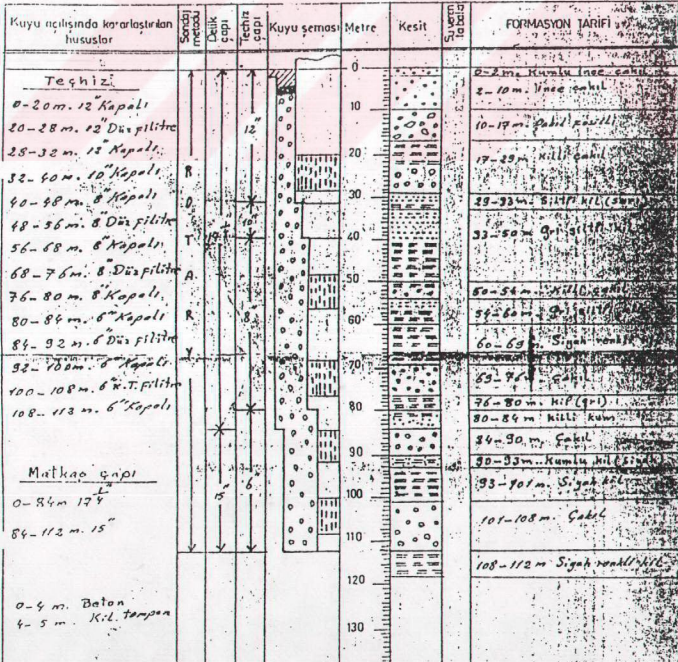 Kuyu açılışında kararlaştırılan hususlar
Sondaj metodu
Delik çapı
Techiz çapı
Kuyu şeması
Metre
Kesit
Su seviye tabala
FORMASYON TARİFİ
Teçhiz
0-20m. 12" Kapalı
20-28m. 12" Düz filitre
28-32m. 12" Kapalı
32-40m. 10" Kapalı
40-48m. 8" Kapalı
48-56m. 8" Düz filitre
56-68m. 8" Kapalı
68-76m. 8" Düz filitre
76-80m. 8" Kapalı
80-84m. 6" Kapalı
84-92m. 6" Düz filitre
92-100m. 6" Kapalı
100-108m. 6" K.T. Filitre
108-113m. 6" Kapalı
Matkap çapı
0-84m 17
84-112m. 15"
0-4m. Beton
4-5m. Kil tampon
R O T A R Y
15"
12"
10"
8"
6"
0
10
20
30
40
50
60
70
80
90
100
110
120
130
0-2m. Kumlu ince çakıl
2-10m. ince çakıl
10-17m. Çakıl
17-29m. Killi çakıl
29-33m. Siltli kil
33-50m gri siltli kil
50-54m. Killi çakıl
54-60m. gri siltli
60-69 Siyah renkli
69-76 Çakıl
76-80m. kil (gri)
80-84m killi kum
84-90m. Çakıl
90-93m. Kumlu kil (siyah)
93-101m. Siyah kil
101-108m. Çakıl
108-112m Siyah renkli kil